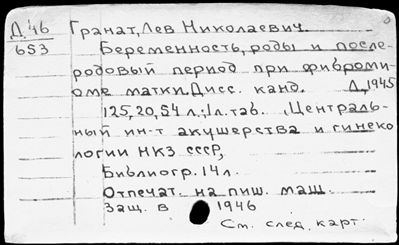 Д.46 Гранат, Лев Николаевич.
653 Беременность, роды и после-
родовый период при фиброми-
оме матки. Дисс. канд. Л., 1945
125, 20, 54 л.; 1л. таб. (Централь-
ный ин-т акушерства и гинеко
логии НКЗ СССР,
Библиогр. 14 л.
Отпечат. на пиш. маш.
Защ. в 1946
См. след. карт.